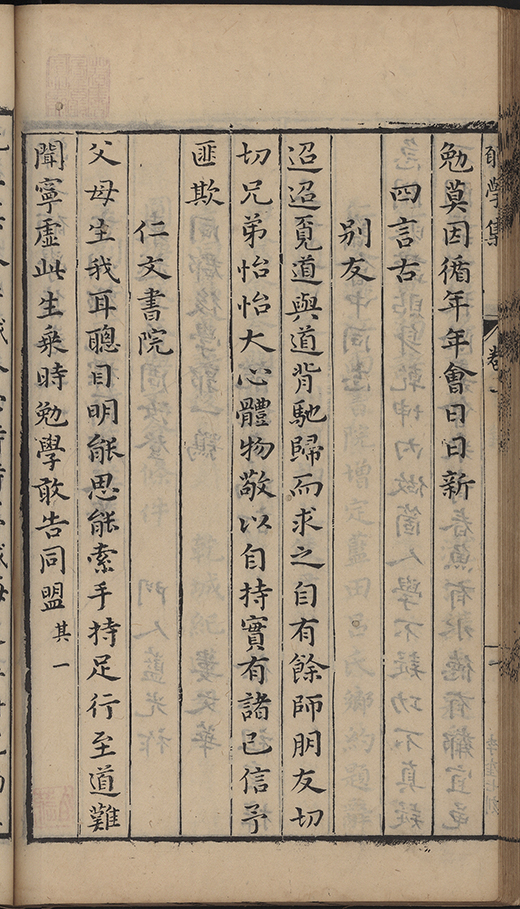 願學集 卷一
勉莫因循年年會日日新
四言古
別友
迢迢覓道與道背馳歸而求之自有餘師朋友切
切兄弟怡怡大心體物敬以自持實有諸已信予
匪欺
仁文書院
父母生我耳聰目明能思能索手持足行至道難
聞寧虛此生乗時勉學敢告同盟 其一